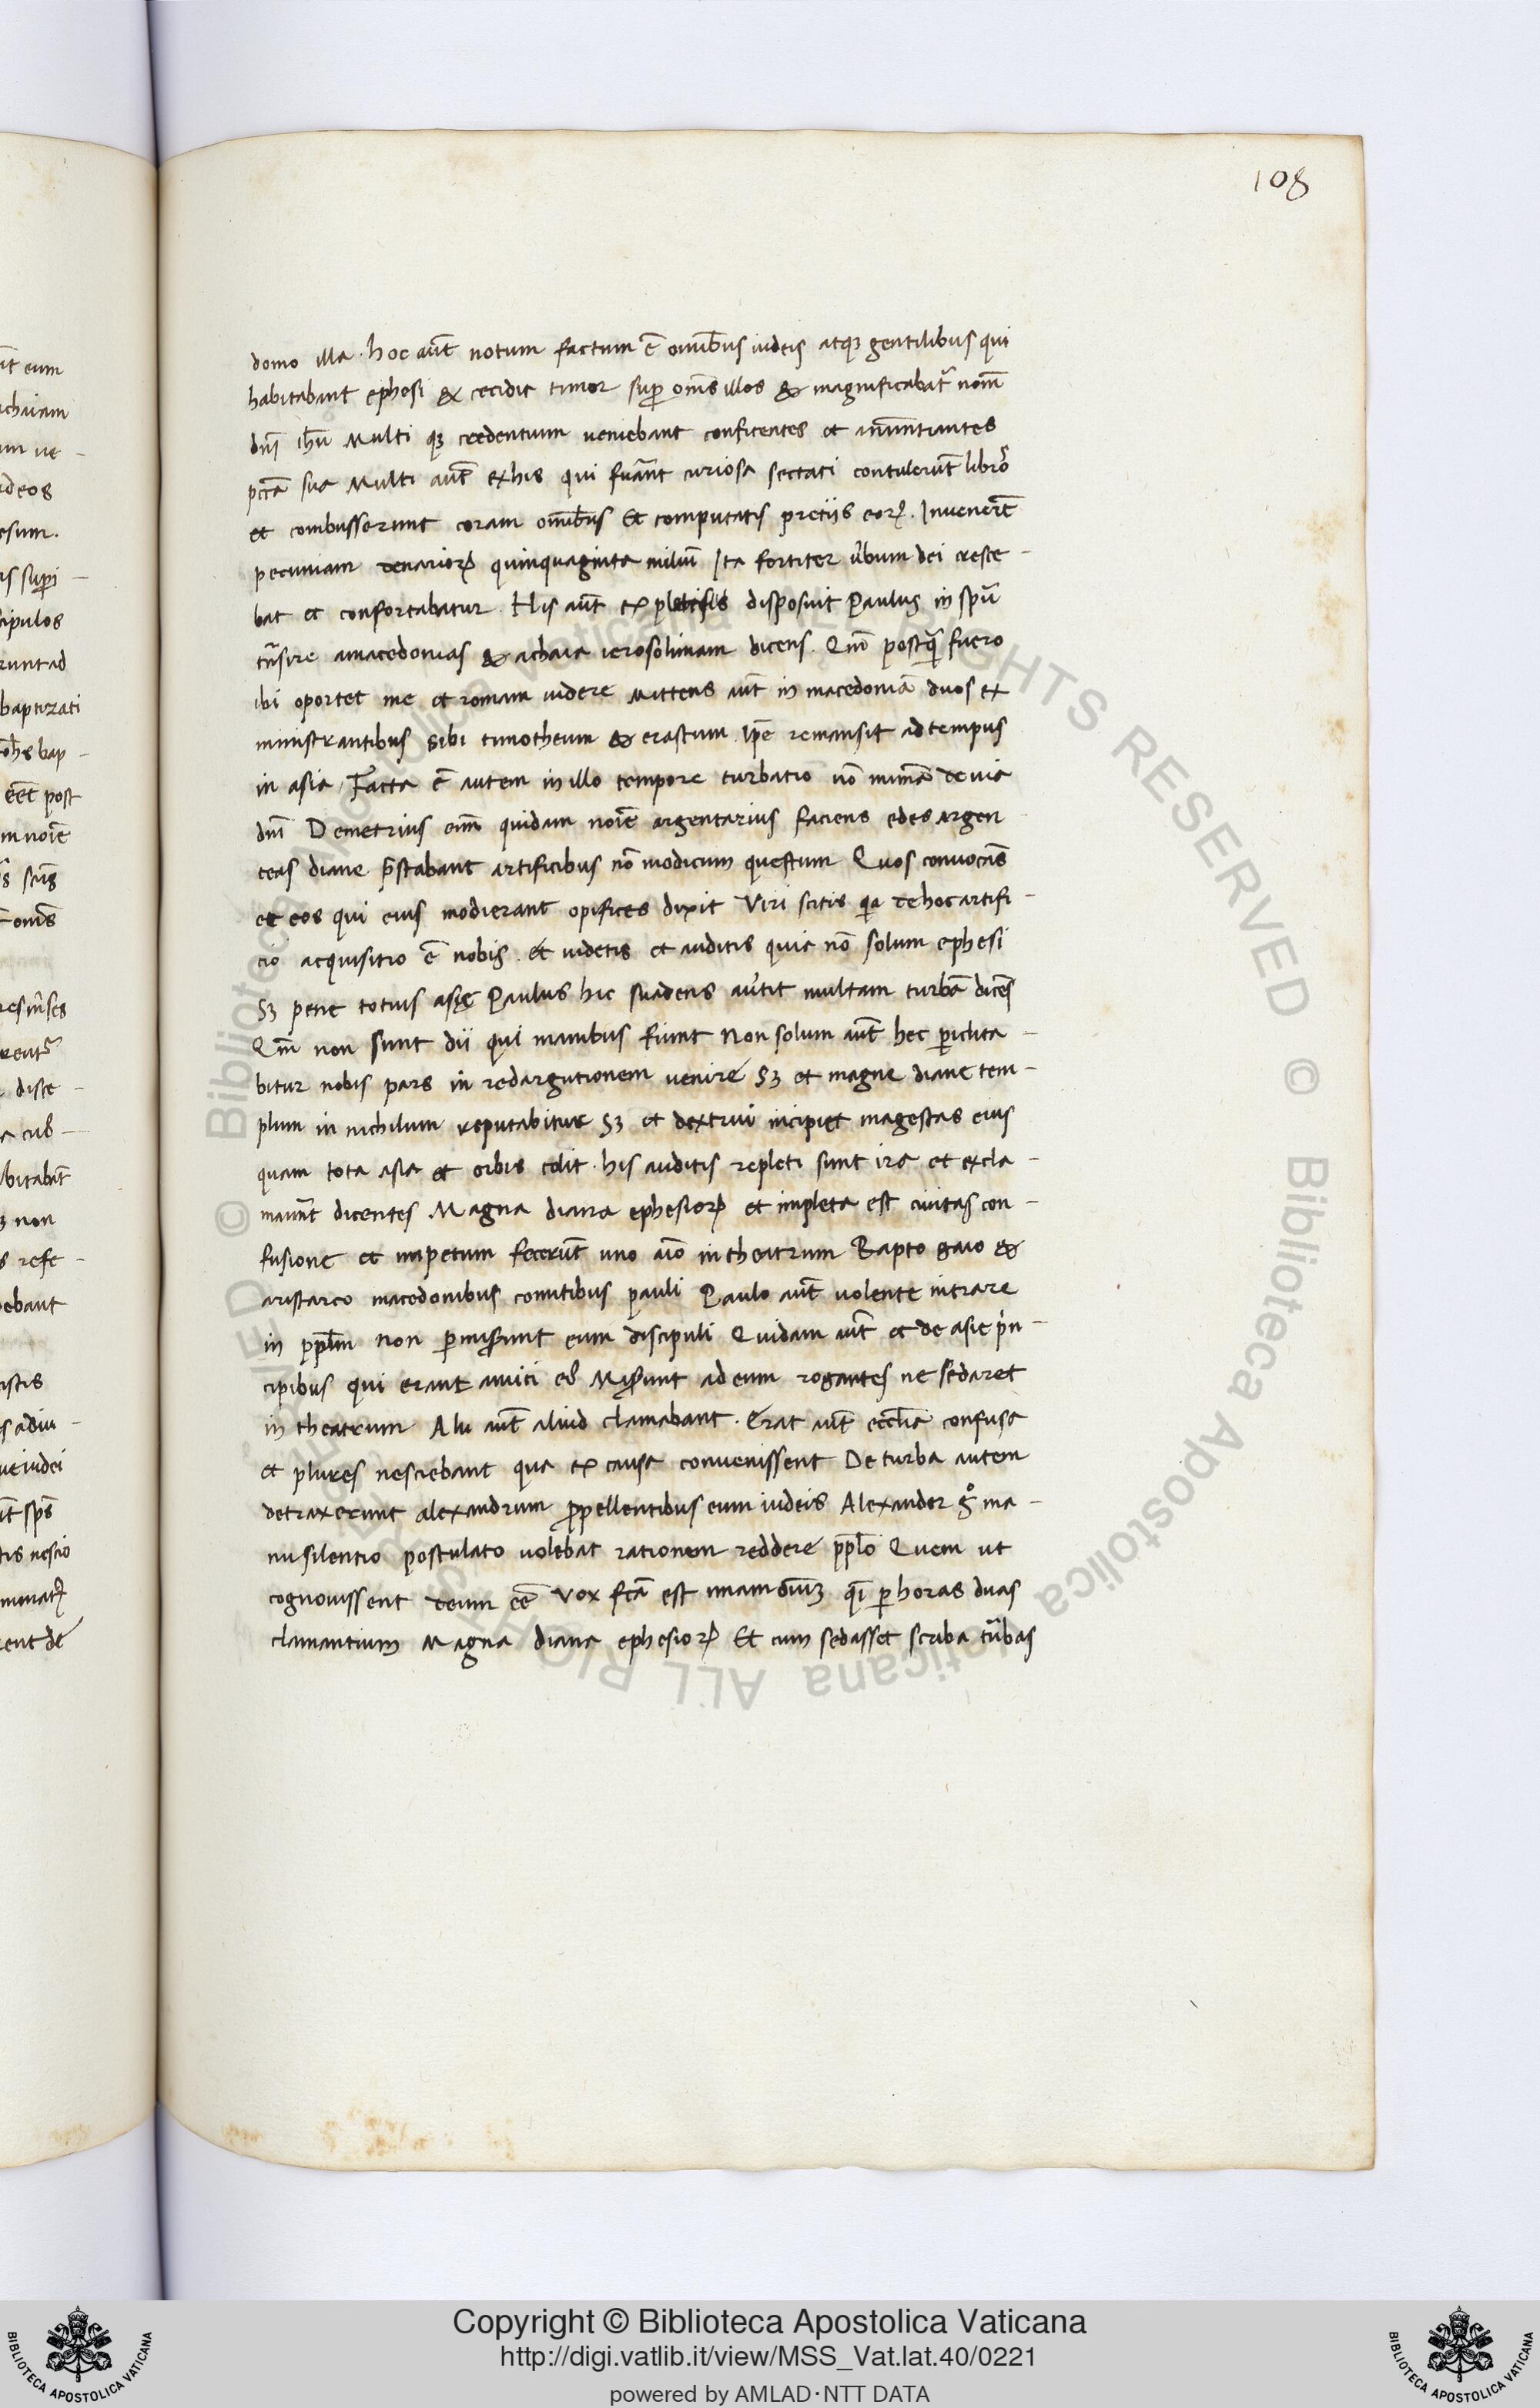 108
domo illa . hoc aūt notum factum ē omībus iudeis atqꝫ gentilibus qui
habitabant ephesi & cecidit timor suꝑ om̄s illos & magnificabat᷑ nom̄
dn̄i ih̄u Multi qꝫ credentium ueniebant confitentes et anūntiantes
pctā sua Multi aūt exhis qui fuānt curiosa sectati contulerūt libro᷑
et combusserunt coram omībus Et computatis pretiis eoꝝ . Inuenerūt
pecuniam denarioꝝ quinquaginta miliū Ita fortiter u̇bum dei cresce
bat et confortabatur . His aūt expletis disposuit Paulus in spū
tn̄sire amacedonias & achaia ierosolimam dicens . Qm̄ postqꝫ fuero
ibi oportet me et romam uidere Mittens aūt in macedoniā duos ex
ministrantibus sibi timotheum & erastum Ip̄e remansit ad tempus
in asia Facta ē autem in illo tempore turbatio nō minimā de uia
dn̄i Demetrius eni᷑ quidam noīe argentarius faciens edes argen
teas diane p̄stabant artificibus nō modicum questum Quos conuocās
et eos qui eius modi erant opifices dixit Viri scitis qa de hoc artifi
cio acquisitio ē nobis . et uidetis et auditis quia nō solum ephesi
Sꝫ pene totius asię Paulus hic suadens au̇tit multam turbā dicēs
Qm̄ non sunt dii qui manibus fiunt Non solum aūt hec ꝑiclita
bitur nobis pars in redargutionem uenire Sꝫ et magne diane tem
plum in nichilum reputabitur Sꝫ et dextrui incipiet magestas eius
quam tota asia et orbis colit . his auditis repleti sunt ira et excla
mauūt dicentes Magna diana ephesioꝝ et impleta est ciuitas con
fusione et impetum fecerūt uno aīo in theatrum Rapto gaio &
aristarco macedonibus comitibus pauli Paulo aūt uolente intrare
in pplm̄ non ꝑmiserunt eum discipuli Quidam aūt et de asie prin
cipibus qui erant amici ei᷑ Miserunt ad eum rogantes ne se daret
in theatrum Alii aūt aliud clamabant . Erat aūt eccl̄ia confusa
et plures nesciebant qua ex causa conuenissent De turba autem
detraxerunt alexandrum ꝓpellentibus eum iudeis Alexander g° ma
nu silentio postulato uolebat rationem reddere pplo Quem ut
cognouissent deum eē Vox fcā est una om̄iuꝫ qi ꝑ horas duas
clamantium Magna diana ephesioꝝ Et cum sedasset scriba tu᷑bas
Copyright © Biblioteca Apostolica Vaticana
http://digi.vatlib.it/view/MSS_Vat.lat.40/0221
powered by AMLAD·NTT DATA